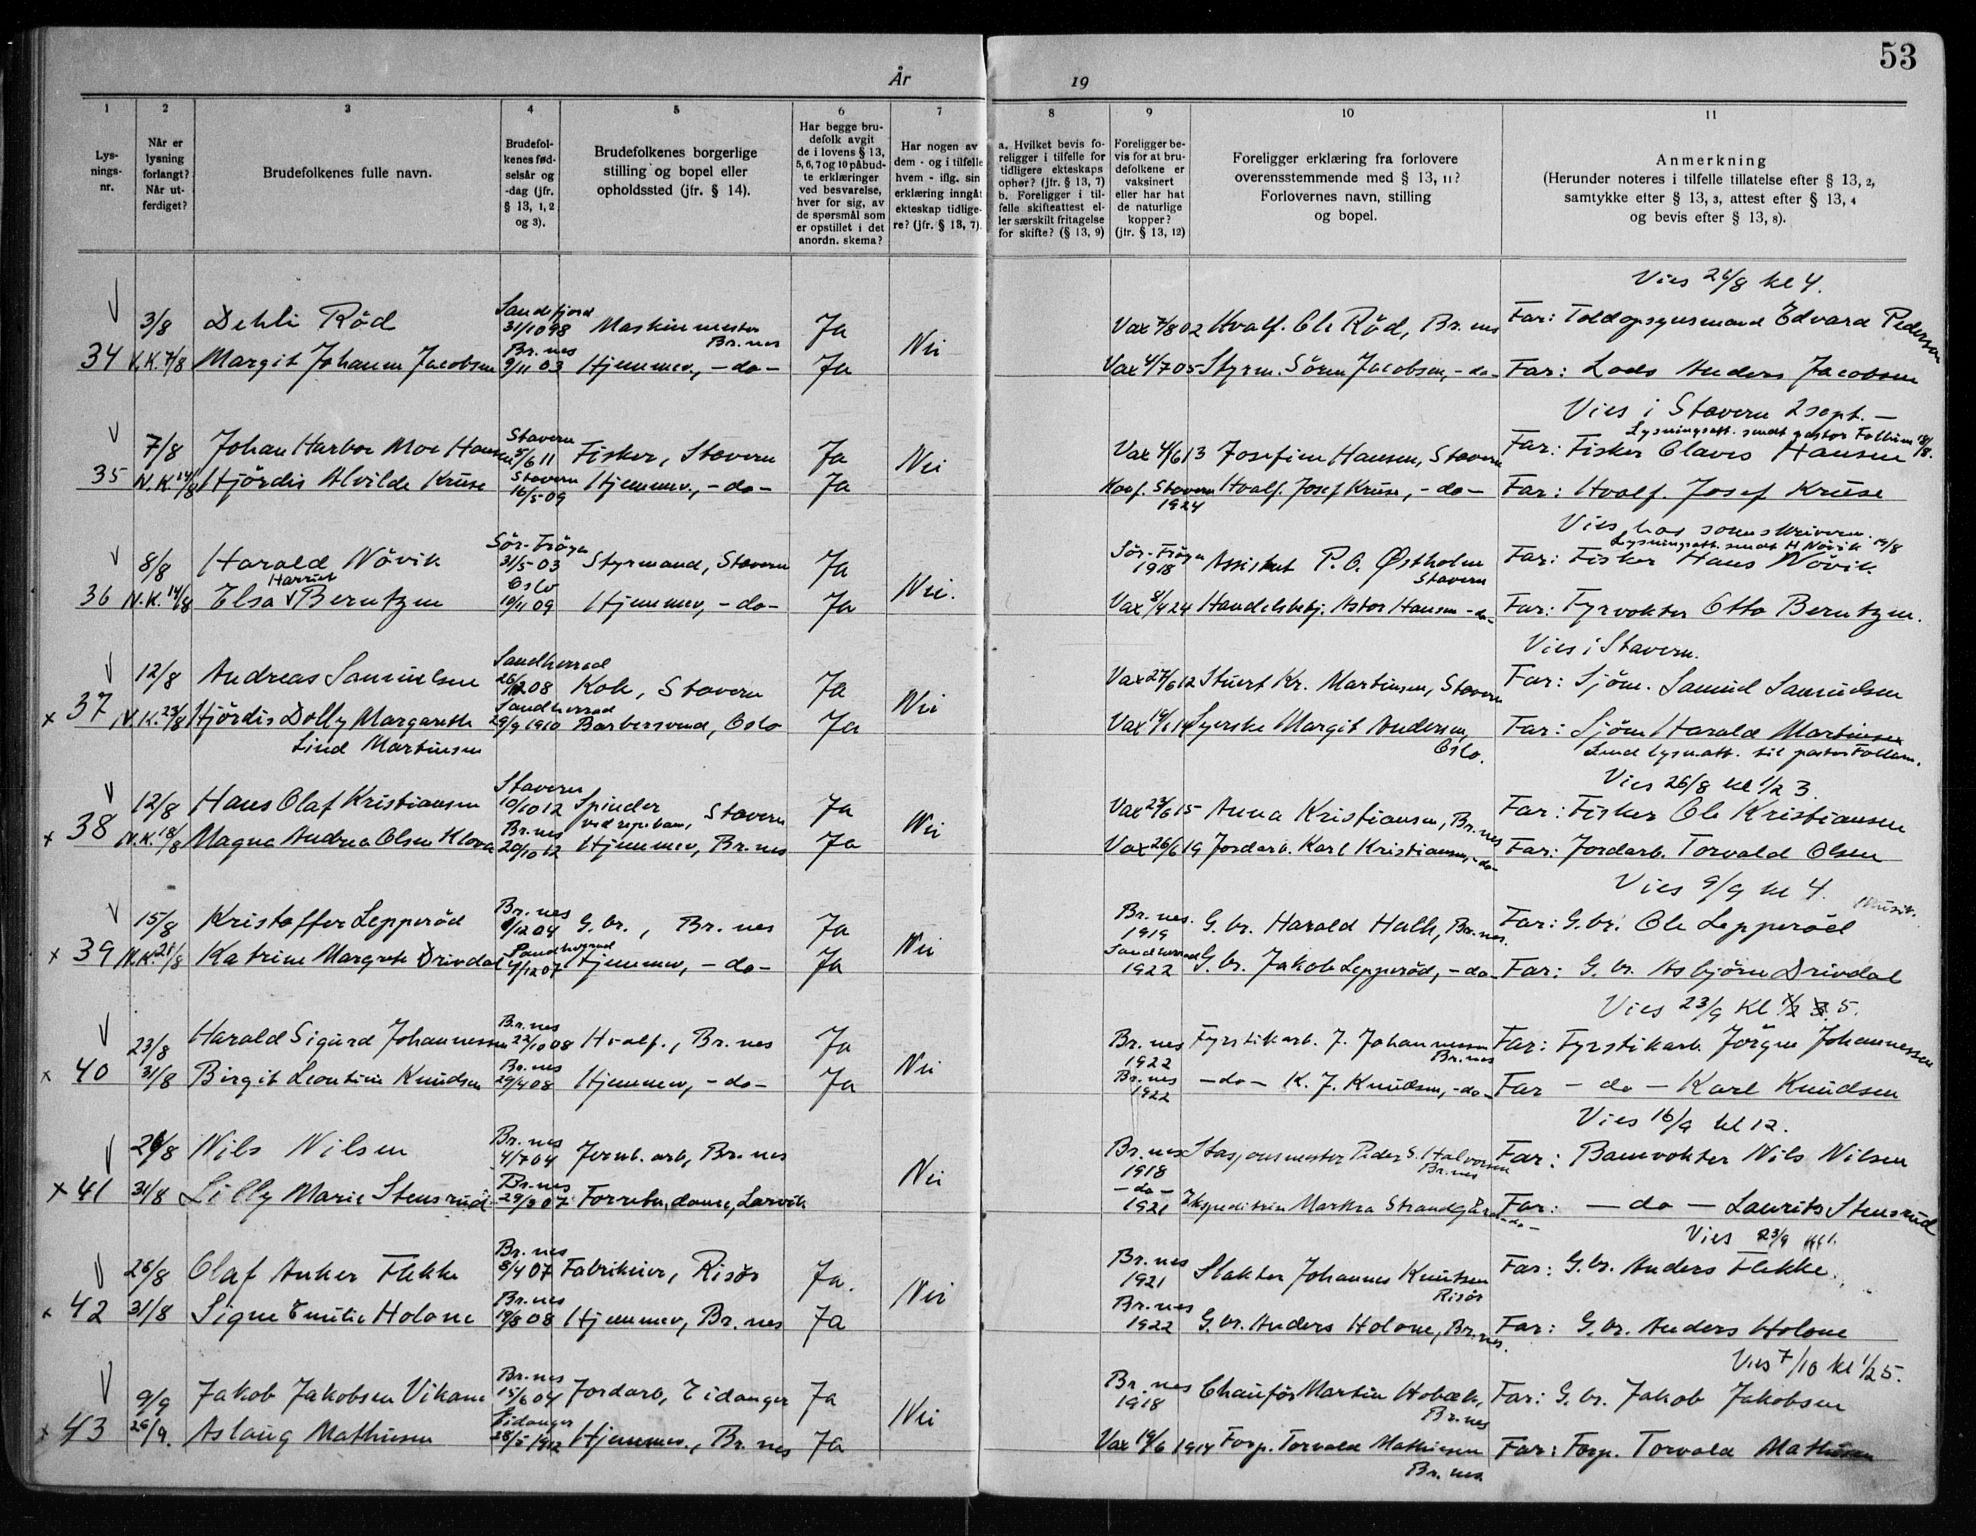 53
År 19
1 2 3 4 5 6 7 8 9 10 11
Lys-
nings-
nr.
Når er
lysning
forlangt?
Når ut-
ferdiget?
Brudefolkenes fulle navn.
Brudefol-
kenes fød-
selsår og
-dag (jfr.
§ 13, 1, 2
og 3).
Brudefolkenes borgerlige
stilling og bopel eller
opholdssted (jfr. § 14).
Har begge bru-
defolk avgit
de i lovens § 13,
5, 6, 7 og 10 påbud-
te erklæringer
ved besvarelse,
hver for sig, av
de spørsmål som
er opstillet i det
anordn. skema?
Har nogen av
dem - og i tilfelle
hvem - iflg. sin
erklæring inngåt
ekteskap tidlige-
re? (jfr. § 13, 7).
a. Hvilket bevis fo-
religger i tilfelle for
tidligere ekteskaps
ophør? (jfr. § 13, 7)
b. Foreligger i til-
felle skifteattest el-
ler særskilt fritagelse
for skifte? (§ 13, 9)
Foreligger be-
vis for at bru-
defolkene er
vaksinert
eller har hat
de naturlige
kopper?
(jfr. § 13, 12)
Foreligger erklæring fra forlovere
overensstemmende med § 13, 11?
Forlovernes navn, stilling
og bopel.
Anmerkning
(Herunder noteres i tilfelle tillatelse efter § 13, 2,
samtykke efter § 13, 3, attest efter § 13, 4
og bevis efter § 13, 8).
Vies 26/8 kl 4.
3/8 Dehli Röd Sandefjord 31/10 98 Maskinmester Br.nes Ja Nei Vax 7/8 02 Hvalf. Ole Röd, Br.nes Far: Toldopsynsmand Edvard Pedersen
34 N.K. 7/8 Margit Johanne Jacobsen Br.nes 9/11 03 Hjemmev, -do- Ja Vax 4/7 05 Styrm. Sören Jacobsen, -do- Far: Lods Anders Jacobsen
Vies i Stavern 2 sept. -
Lysningsatt. sendt pastor Follum 18/8.
7/8 Johan Harboe Moe Hansen Stavern 5/6 11 Fisker, Stavern Ja Nei Vax 4/6 13 Josefine Hansen, Stavern Far: Fisker Olaves Hansen
35 N.K. 14/8 Hjördis Alvilde Kruse Stavern 16/5 09 Hjemmev, -do- Ja Konf. Stavern 1924 Hvalf. Josef Kruse, -do- Far: Hvalf. Josef Kruse
Vies hos sorenskriveren.
Lysningsatt. sendt H Növik 19/8
8/8 Harald Növik Sör-Fröya 31/5 03 Styrmand, Stavern Ja Nei. Sör-Fröya 1918 Assistent P. O. Østholm Stavern Far: Fisker Hans Növik
36 N.K. 14/8 Elsa Harriet Berntzen Oslo 10/11 09 Hjemmev, -do- Ja Vax 8/4 24 Handelsbetj. Astor Hansen -do- Far: Fyrvokter Otto Berntzen.
Vies i Stavern.
12/8 Andreas Samuelsen Sandherred 26/12 08 Kok, Stavern Ja Nei Vax 27/6 12 Stuert Kr. Martinsen, Stavern Far: Sjöm. Samuel Samuelsen
x 37 N.K. 23/8 Hjördis Dolly Margareth Lind Martinsen Sandherred 29/9 1910 Barbersvend, Oslo Ja Syerske Margit Andersen, Oslo. Far: Sjöm Harald Martinsen
Send lysnatt. til pastor Follum.
Vies 26/8 kl 1/2 3.
12/8 Hans Olaf Kristiansen Stavern 10/10 12 Spinder ved repeban, Stavern Ja Nei Vax 23/6 15 Anna Kristiansen, Br.nes Far: Fisker Ole Kristiansen
x 38 N.K. 18/8 Magna Andrea Olsen Klova Br.nes 20/10 12 Hjemmev, Br.nes Ja Vax 26/6 19 Jordarb. Karl Kristiansen, -do- Far: Jordarb. Torvald Olsen
Vies 9/9 kl 4. Musik.
15/8 Kristoffer Lepperöd Br.nes 9/12 04 G.br., Br.nes Ja Nei Br.nes. 1919 G.br. Harald Halle, Br.nes. Far: G.br. Ole Lepperöd
x 39 N.K. 21/8 Katrine Margrete Drivdal Sandherred 4/12 07 Hjemmev, -do- Ja Sandherred 1922 G.br. Jakob Lepperöd, -do- Far: G.br. Asbjörn Drivdal
Vies 23/9 Kl 5.
23/8 Harald Sigurd Johannessen Br.nes 22/10 08 Hvalf., Br.nes Ja Nei Br.nes 1922 Fyrstikarb. J. Johannessen Br.nes Far: Fyrstikarb. Jörgen Johannessen
x 40 31/8 Birgit Leontine Knudsen Br.nes 29/4 08 Hjemmev, -do- Ja Br.nes 1922 -do- K. J. Knudsen, -do- Far -do- Karl Knudsen
Vies 16/9 kl 12.
26/8 Nils Nilsen Br.nes 4/7 04 Jernb. arb, Br.nes Nei Br.nes 1918 Stasjonsmester Peder S. Halvorsen Br.nes Far: Banevokter Nils Nilsen
x 41 31/8 Lilly Marie Stensrud Br.nes 29/3 07 Forretn.dame, Larvik -do- 1921 Ekspeditrise Martha Strandgård -do- Far: -do- Laurits Stensrud
Vies 23/9 kl 1.
26/8 Olaf Anker Flekke Br.nes 8/4 07 Fabrikeier, Risör Ja. Nei Br.nes 1921 Slakter Johannes Knutsen Risör Far: G.br. Anders Flekke
x 42 31/8 Signe Emilie Holane Br.nes 19/8 08 Hjemmev, Br.nes Ja Br.nes 1922 G.br. Anders Holane, Br.nes. Far: G.br. Anders Holane
Vies 7/10 kl 1/2 5.
9/9 Jakob Jakobsen Vikane Br.nes 15/6 04 Jordarb, Eidanger Ja Nei Br.nes 1918 Chauför Martin Hobæk, Br.nes Far: G.br. Jakob Jakobsen
x 43 26/9. Aslaug Mathisen Eidanger 28/5 1912 Hjemmev., Br.nes Ja Vax 19/6 1914 Forp. Torvald Mathisen Br.nes Far: Forp. Torvald Mathisen